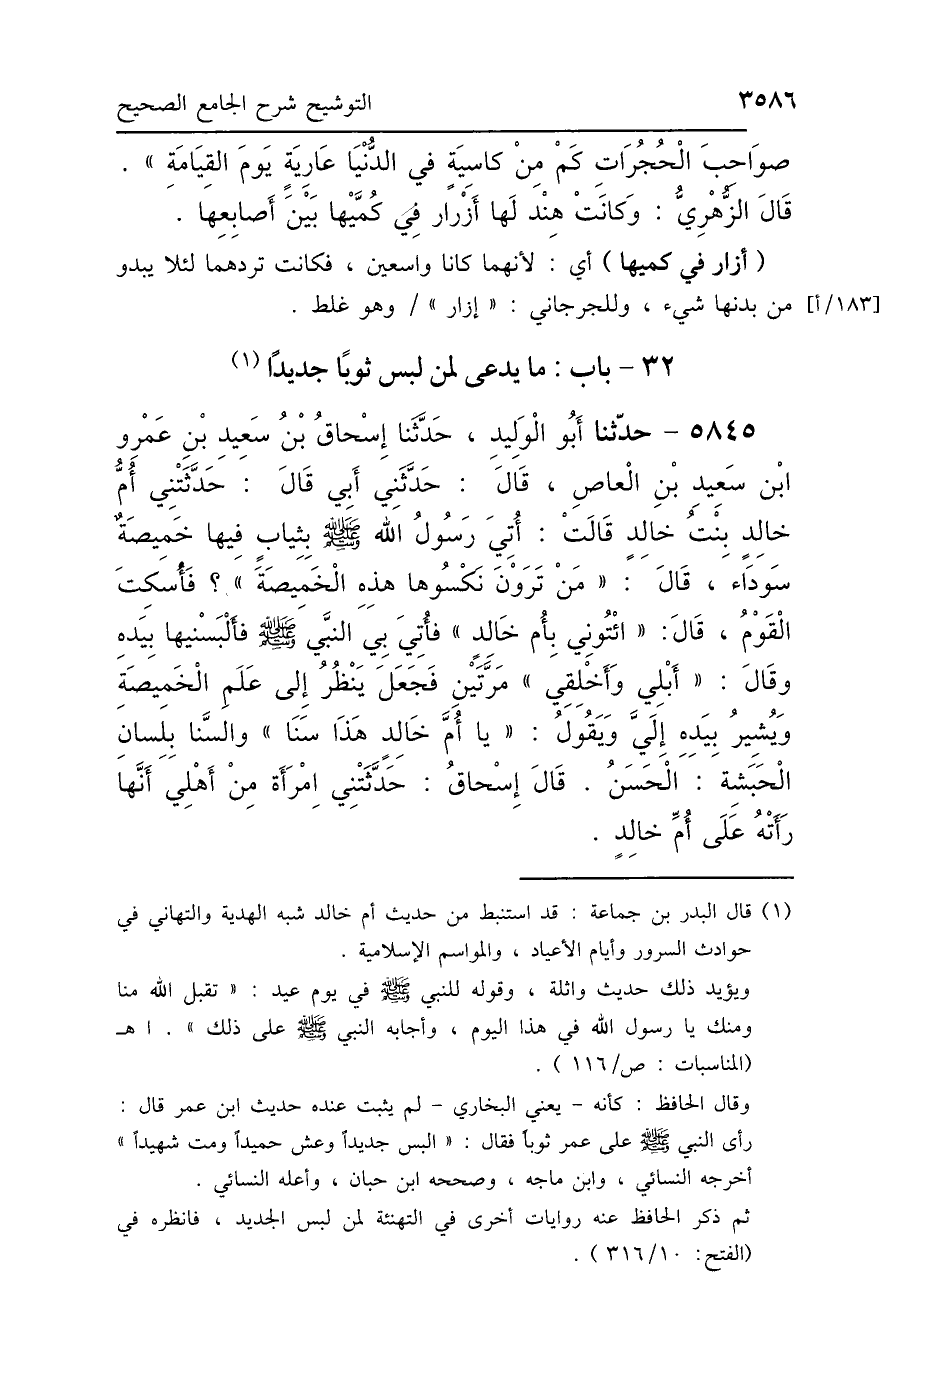 ٣٥٨٦ التوشيح شرح الجامع الصحيح
صواحِبَ الْحُجُرَاتِ كَمْ مِنْ كاسِيَةٍ في الدُّنْيَا عَارِيَةٍ يَومَ القِيَامَةِ » .
قَالَ الزُّهْرِيُّ : وَكَانَتْ هِنْد لَها أَزْرار فِي كُمَّيْها بَيْنَ أَصابِعِها .
( أزار في كميها ) أي : لأنهما كانا واسعين ، فكانت تردهما لئلا يبدو
[١٨٣/أ] من بدنها شيء ، وللجرجاني : « إزار » / وهو غلط .
٣٢ - باب : ما يدعى لمن لبس ثوبًا جديدًا (١)
٥٨٤٥ - حدّثنا أَبُو الْوَلِيدِ ، حَدَّثَنا إِسْحاقُ بْنُ سَعِيدِ بْنِ عَمْرِو
ابْنِ سَعِيدِ بْنِ الْعاصِ ، قَالَ : حَدَّثَنِي أَبي قَالَ : حَدَّثَتْنِي أُمُّ
خالِدٍ بِنْتُ خالِدٍ قَالَتْ : أُتِيَ رَسُولُ الله ﷺ بِثِيابٍ فِيها خَمِيصَةٌ
سَودَاء ، قَالَ : « مَنْ تَرَوْنَ نَكْسُوها هذِهِ الْخَمِيصَةَ » ؟ فَأُسكتَ
القَوْمُ ، قَالَ: « ائْتُونِي بِأُم خَالِدٍ » فأُتِيَ بِي النبيَّ ﷺ فألْبَسْنِيها بِيَدِهِ
وقالَ : « أَبْلِي وَأَخْلِقِي » مَرَّتَيْنِ فَجَعَلَ يَنْظُرُ إِلى عَلَمِ الْخَمِيصَةِ
وَيُشِيرُ بِيَدِهِ إِلَيَّ وَيَقُولُ : « يا أُمَّ خَالِدٍ هَذَا سَنَا » والسَّنا بِلِسانِ
الْحَبَشَةِ : الْحَسَنُ . قَالَ إِسْحاقُ : حَدَّثَتْنِي امْرَأَة مِنْ أَهْلِي أَنَّها
رَأَتْهُ عَلَى أُمِّ خالِدٍ .
(١) قال البدر بن جماعة : قد استنبط من حديث أم خالد شبه الهدية والتهاني في
حوادث السرور وأيام الأعياد ، والمواسم الإسلامية .
ويؤيد ذلك حديث واثلة ، وقوله للنبي ﷺ في يوم عيد : « تقبل الله منا
ومنك يا رسول الله في هذا اليوم ، وأجابه النبي ﷺ على ذلك » . ا هـ
(المناسبات : ص/١١٦ ) .
وقال الحافظ : كأنه - يعني البخاري - لم يثبت عنده حديث ابن عمر قال :
رأى النبي ﷺ على عمر ثوباً فقال : « البس جديداً وعش حميداً ومت شهيداً »
أخرجه النسائي ، وابن ماجه ، وصححه ابن حبان ، وأعله النسائي .
ثم ذكر الحافظ عنه روايات أخرى في التهنئة لمن لبس الجديد ، فانظره في
(الفتح: ٣١٦/١٠ ) .